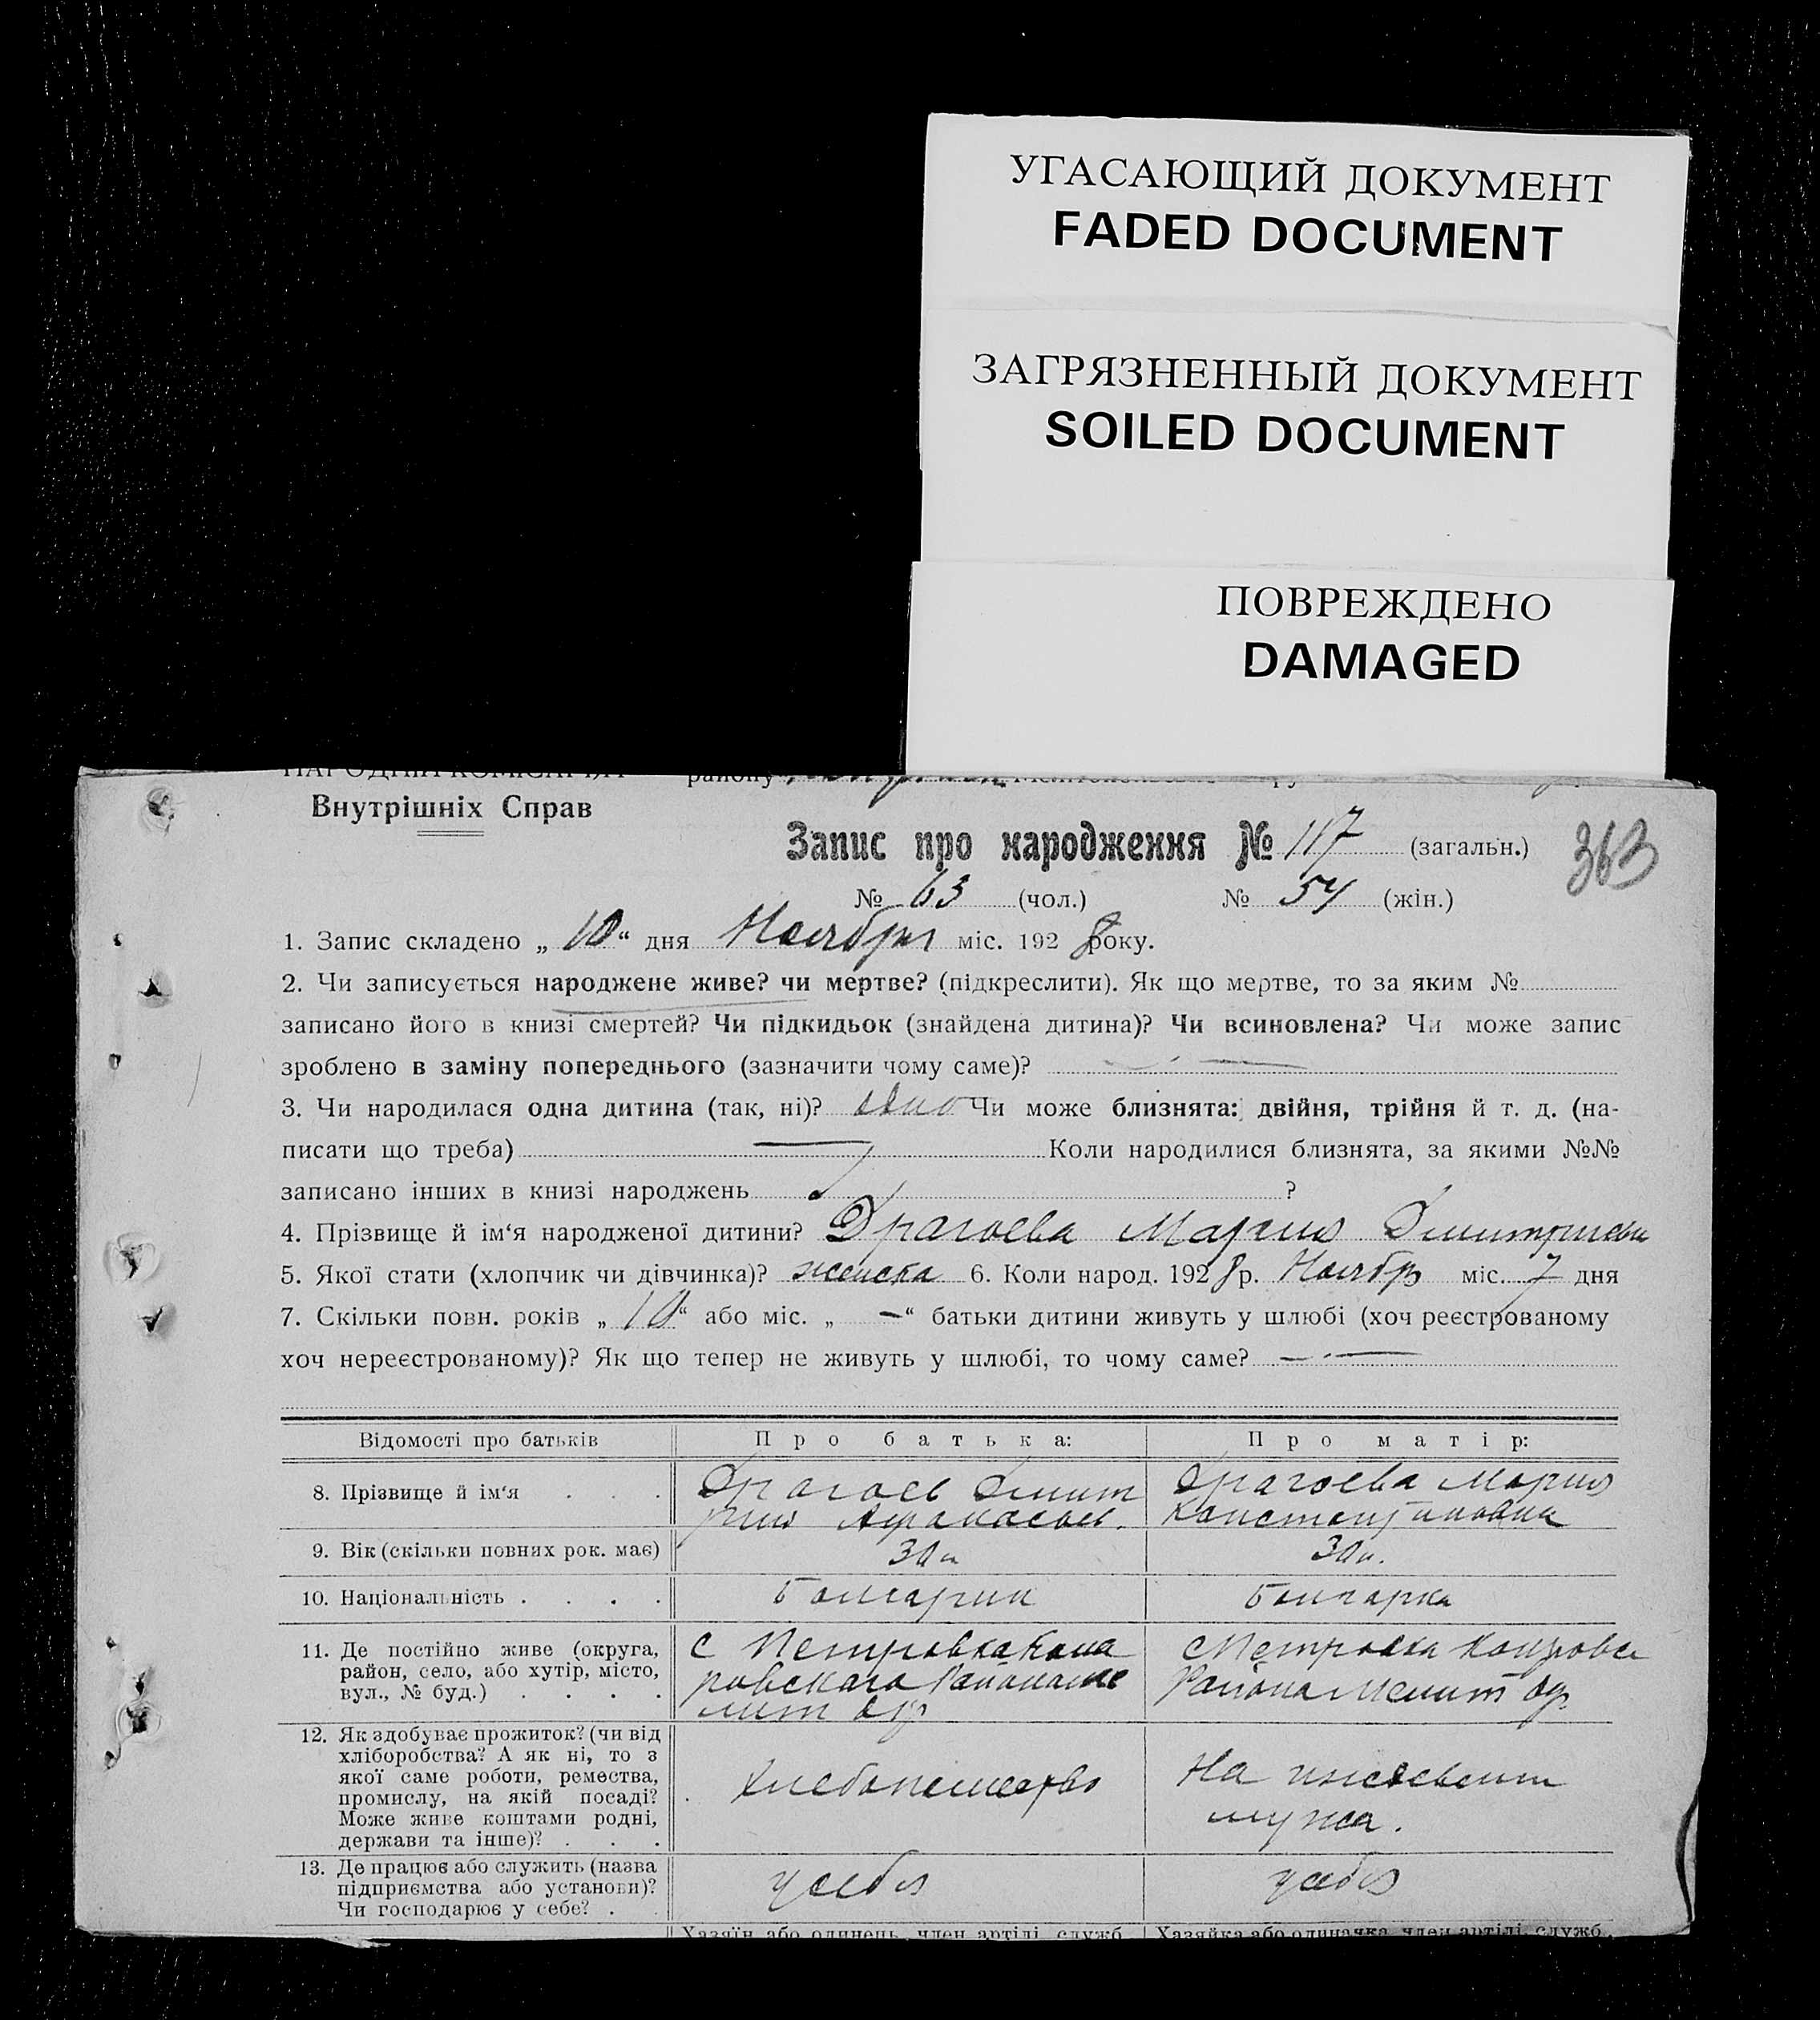 УГАСАЮЩИЙ ДОКУМЕНТ
FADED DOCUMENT
ЗАГРЯЗНЕННЫЙ ДОКУМЕНТ
SOILED DOCUMENT
ПОВРЕЖДЕНО
DAMAGED
НАРОДНІЙ КОМІСАРІЯТ району
Внутрішніх Справ
Запис про народження № 117 (загальн.)
363
№ 63 (чол.) № 54 (жін.)
1. Запис складено „ 10 “ дня Ноября міс. 192 8 року.
2. Чи записується народжене живе? чи мертве? (підкреслити). Як що мертве, то за яким №
записано його в книзі смертей? Чи підкидьок (знайдена дитина)? Чи всиновлена? Чи може запис
зроблено в заміну попереднього (зазначити чому саме)? —
3. Чи народилася одна дитина (так, ні)? одно Чи може близнята: двійня, трійня й т. д. (на-
писати що треба) — Коли народилися близнята, за якими №№
записано інших в книзі народжень ?
4. Прізвище й ім‘я народженої дитини? Драгоева Мария
5. Якої стати (хлопчик чи дівчинка)? женска 6. Коли народ. 192 8 р. Ноябр міс. 7 дня
7. Скільки повн. років „ 10 “ або міс. „ — “ батьки дитини живуть у шлюбі (хоч реєстрованому
хоч нереєстрованому)? Як що тепер не живуть у шлюбі, то чому саме? —
Відомості про батьків Про батька: Про матір:
8. Прізвище й ім‘я . . . Драгоев Дмит Драгоева Мария
рий Афанасьев. Константиновна
9. Вік (скільки повних рок. має) 30 30
10. Національність . . . . Болгарин Болгарка
11. Де постійно живе (округа, с Петровка с Петровка
район, село, або хутір, місто, ровскаго Района Ме Района Мелит окр
вул., № буд.) . . . . лит окр
12. Як здобуває прожиток? (чи від
хліборобства? А як ні, то з
якої саме роботи, ремества, Хлебопашество На
промислу, на якій посаді?
Може живе коштами родні, мужа.
держави та інше)? . . .
13. Де працює або служить (назва у себя у себя
підприємства або установи)?
Чи господарює у себе? .
Хазяїн або одинець, член артілі, служб. Хазяйка або одиначка, член артілі, служб.,